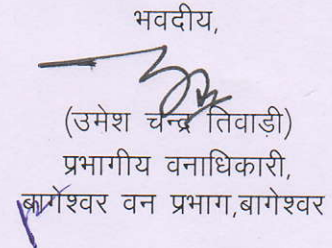 भवदीय,
(उमेश चन्द्र तिवाड़ी)
प्रभागीय वनाधिकारी,
बागेश्वर वन प्रभाग,बागेश्वर